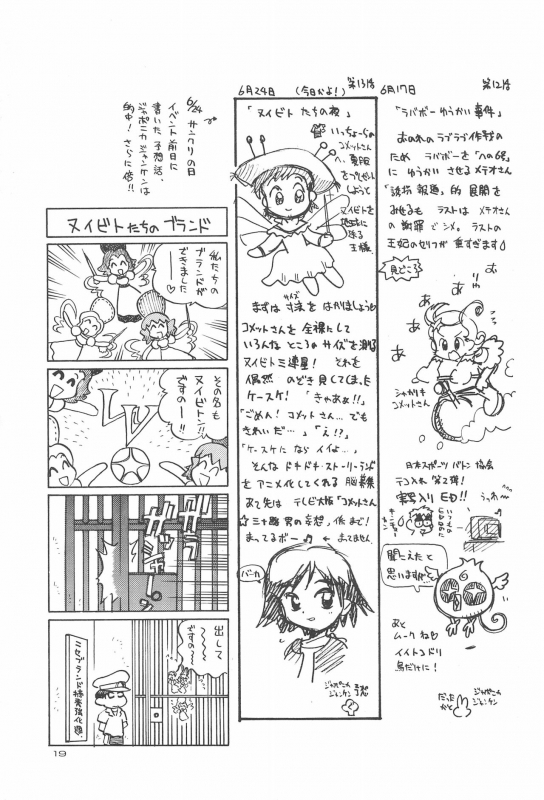 第12話
6月17日
「ラバボー ゆうかい事件」
おのれのラブラブ作戦の
ため ラバボーを「への6号」
に ゆうかい させるメテオさん
「誘拐報道」的 展開を
みせるも ラストは メテオさん
の謝罪でシメ。ラストの
王妃のセリフが 重すぎます
見どころ
あぁ
あぁ
あぁ
シャカリキ
コメットさん
日本スポーツバトン協会
テコ入れ 第2弾!
実写入りED!!
うっわ〜
聞こえたと
思いますが
あと
ムーク ねぴ
イイトコドリ
鳥だけに!
だった
かと
ジャポニカ
ジャンケン
第13話
6月24日 (今日かよ!)
「ヌイビト たちの夜」
いっちょーらの
コメットさん
へ、夏服
をプレゼント
しようと
ヌイビトを
地球に
送る
王様
まずは 寸法を はかりましょう
サイズ
コメットさんを 全裸にして
いろんな ところの サイズを 測る
ヌイビト三連星! それを
偶然 のぞき見してしまった
ケースケ! 「きゃあぁ!!」
「ごめん! コメットさん… でも
きれいだ…」「え!?」
「ケースケに なら イイよ…」
そんな ドキドキ・ストーリーランド
をアニメ化してくれる 脳募集
あて先は テレビ大阪「コメットさん
☆三十路男の妄想」係 まで!
まってるボー♪ ← まってません
バーカ
ジャポニカ
ジャンケン
予想
6/24 サンクリの日
イベント前日に
書いた、予想話。
ジャポニカジャンケンは
的中! さらに倍!!
ヌイビトたちのブランド
私たちの
ブランドが
できました
〜
その名も
ヌイビトン!!
ですの〜!!
LV
ガラガラ
ガシャーン
出して
〜〜〜
ですの〜
ニセブランド捜査強化週
19